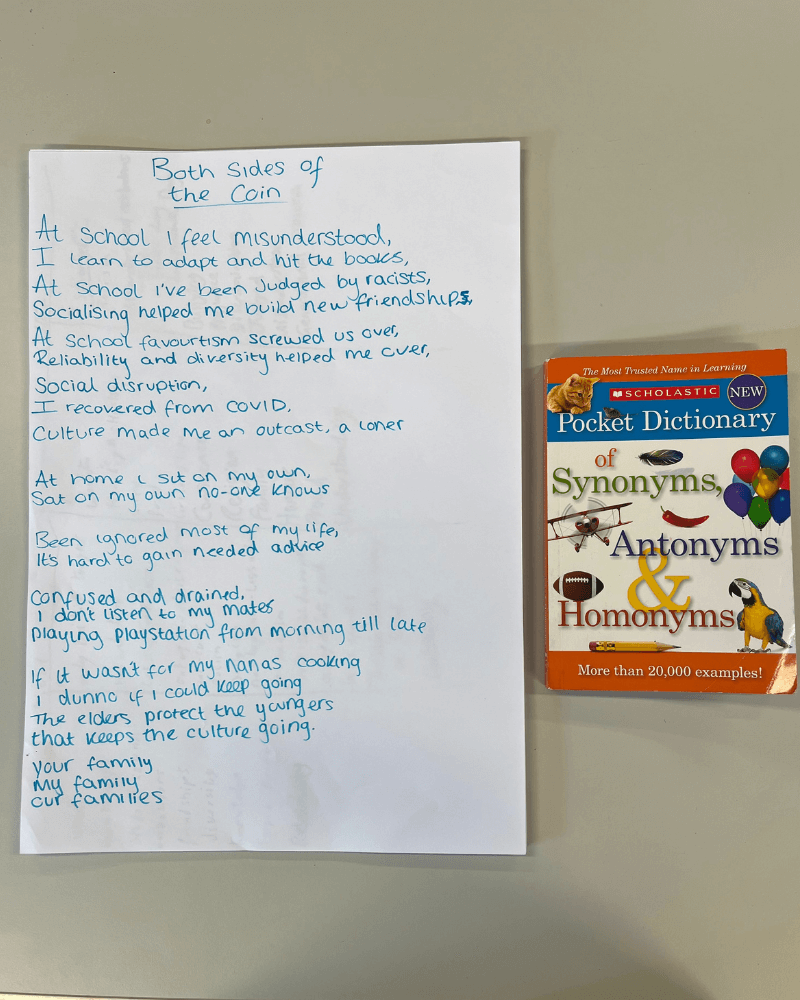 Both Sides of
the Coin
At School I feel misunderstood,
I learn to adapt and hit the books,
At School I've been Judged by racists,
Socialising helped me build new friendships,
At School favourtism screwed us over,
Reliability and diversity helped me over,
Social disruption,
I recovered from COVID.
Culture made me an outcast, a loner
At home i sit on my own,
Sat on my own no-one knows
Been ignored most of my life,
It's hard to gain needed advice
Confused and drained,
I don't listen to my mates
Playing Playstation from morning till late
If it wasn't for my nanas cooking
I dunno if I could keep going
The elders protect the youngers
that keeps the culture going.
your family
My family
our families
The Most Trusted Name in Learning
SCHOLASTIC
NEW
Pocket Dictionary
of
Synonyms,
Antonyms
&
Homonyms
More than 20,000 examples!